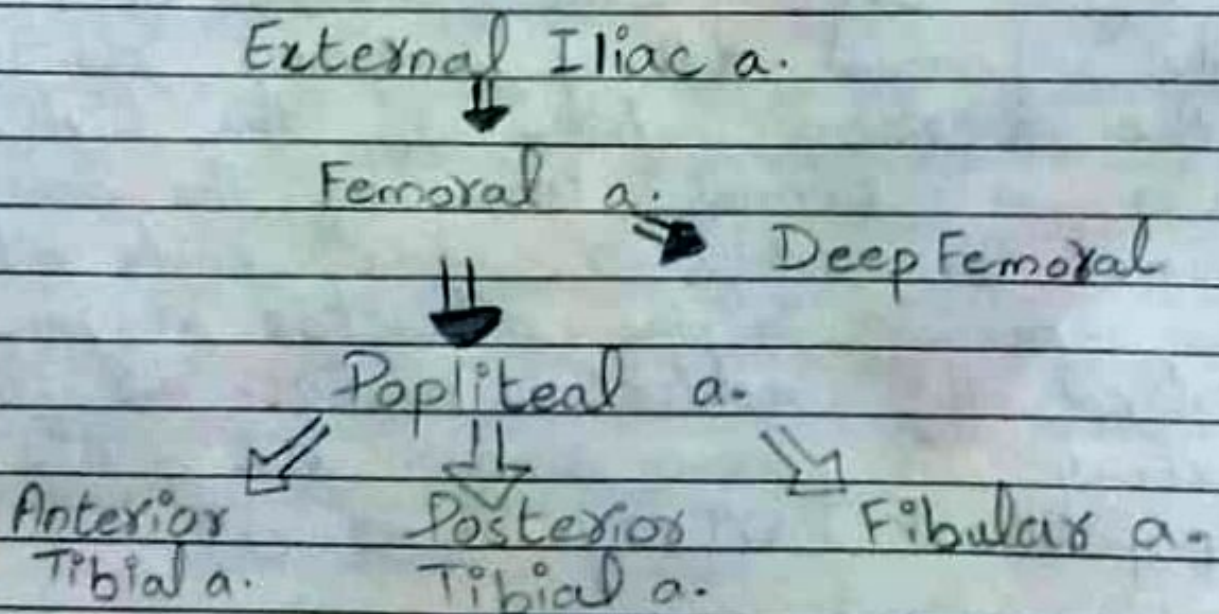 External Iliac a.
Femoral a.
Deep Femoral
Popliteal a.
Anterior Tibial a.
Posterior Tibial a.
Fibular a.